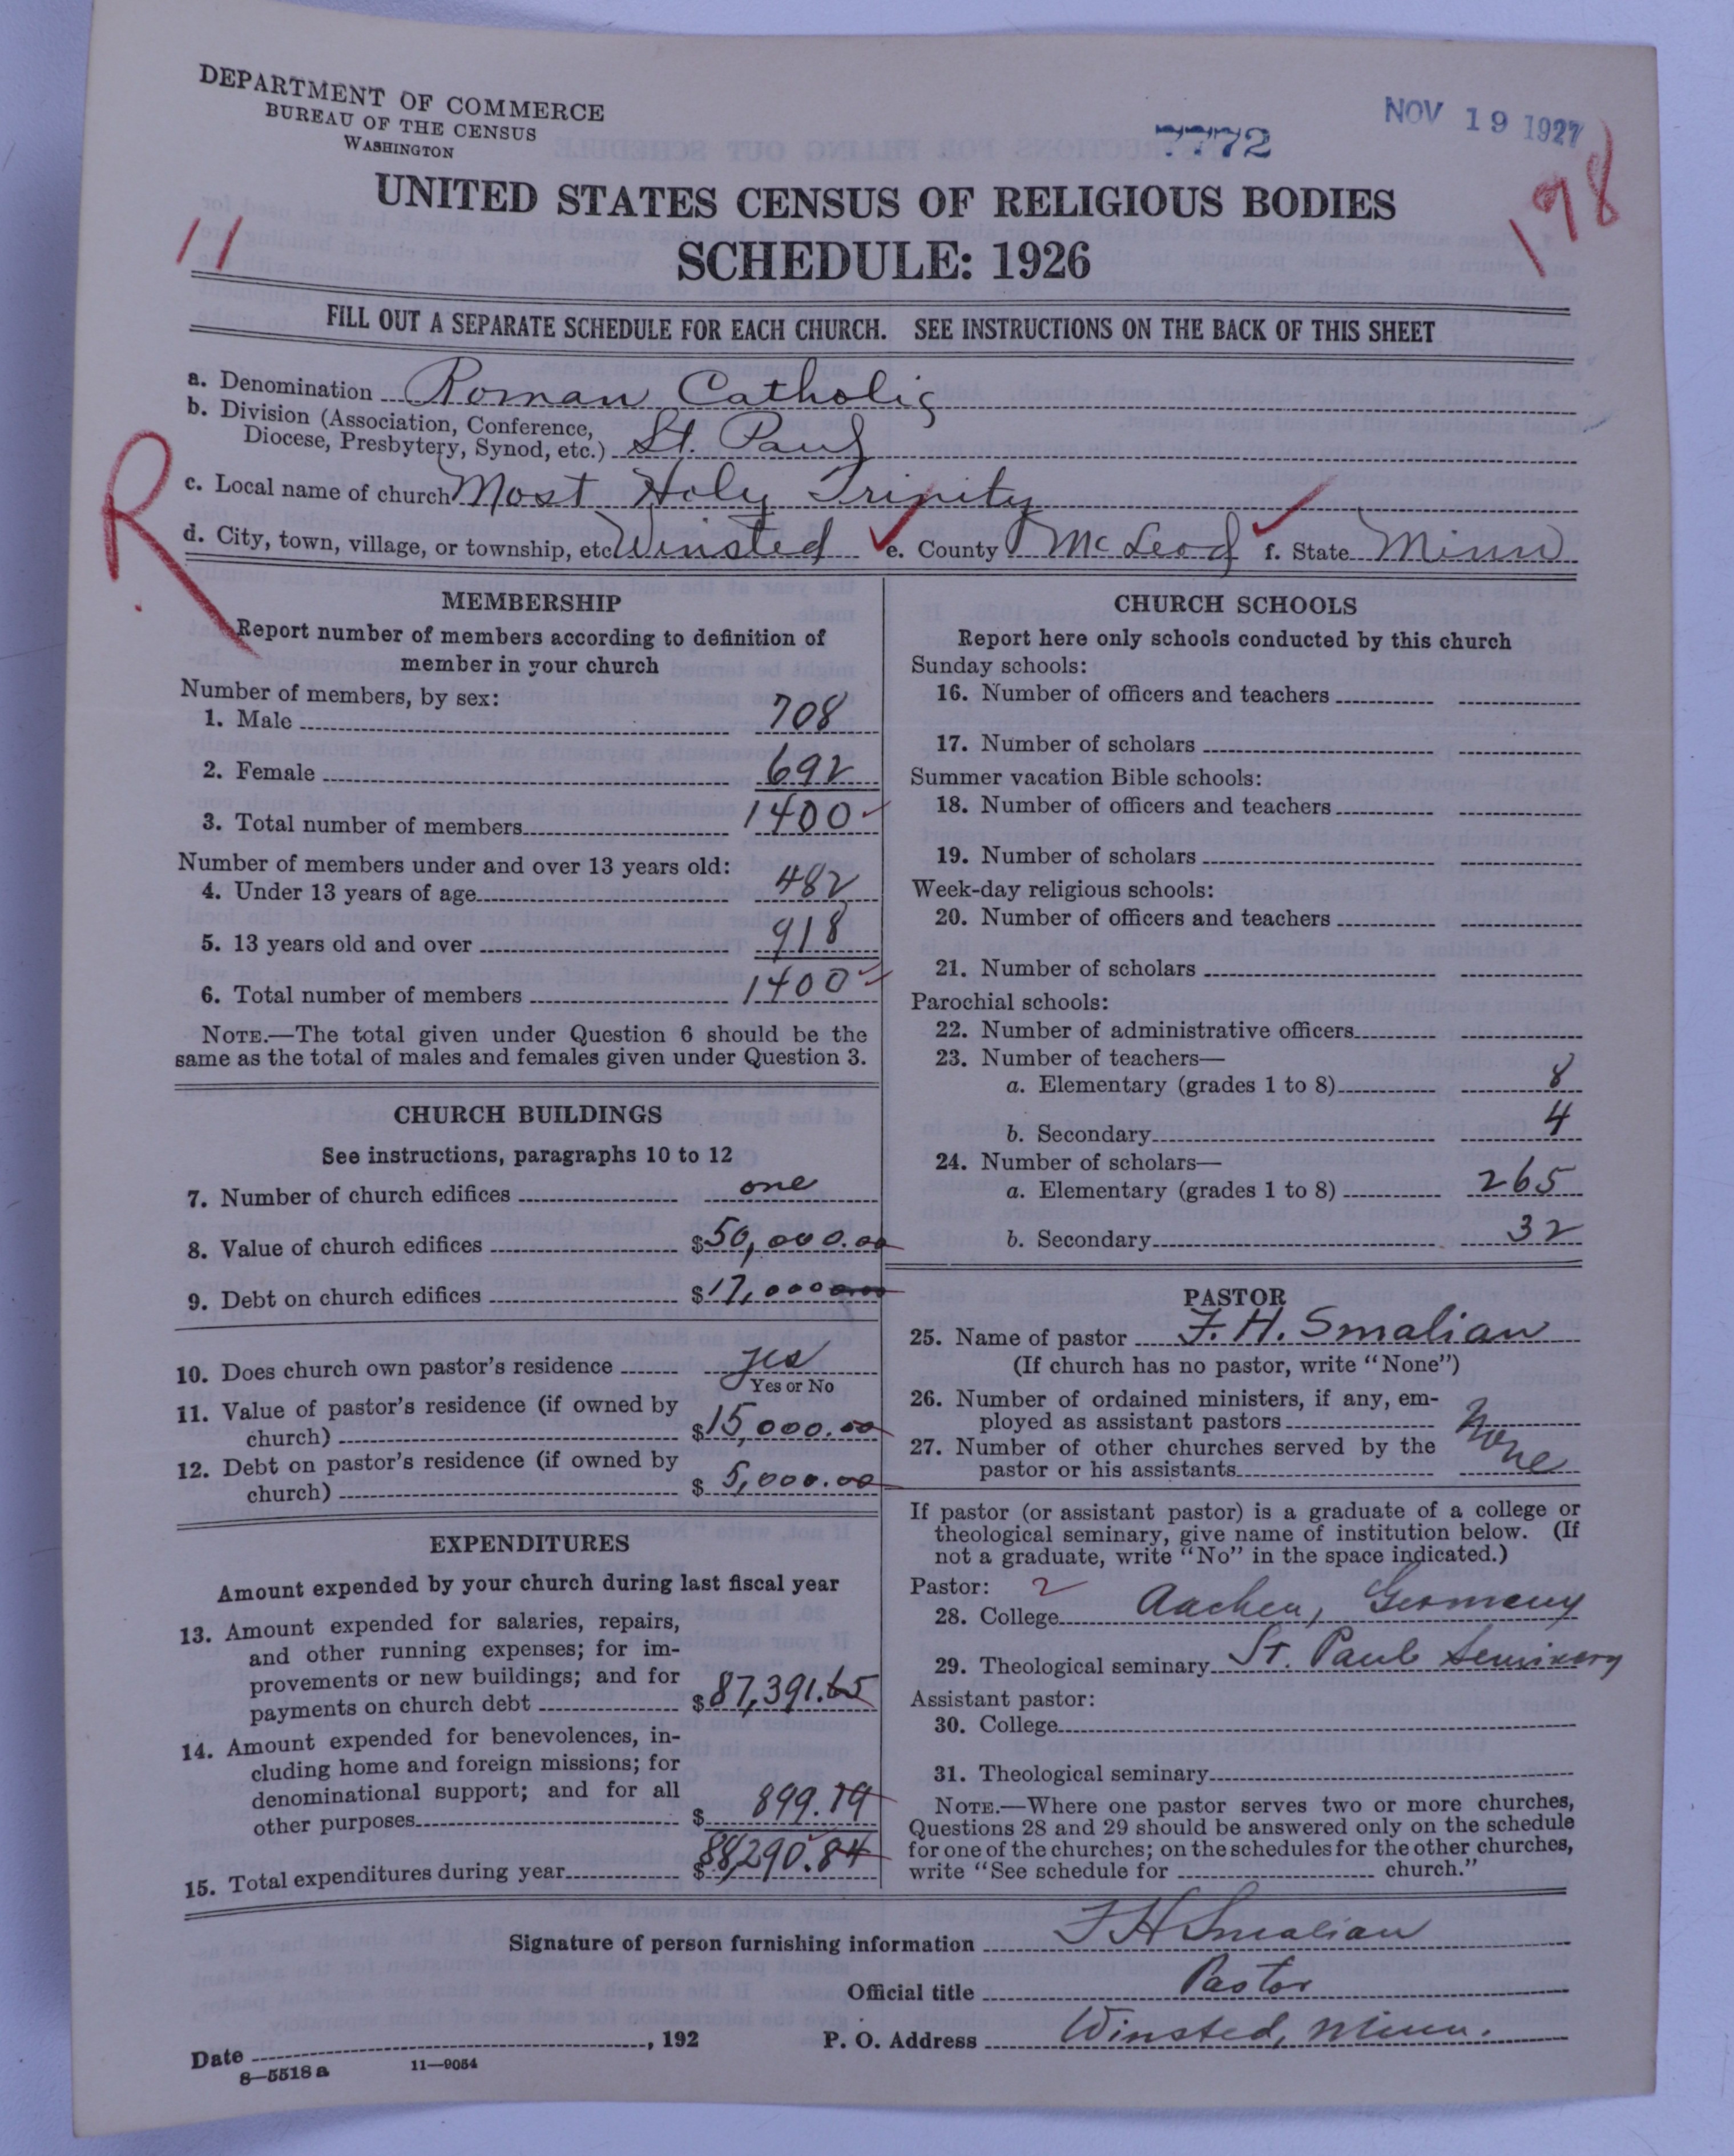 DEPARTMENT OF COMMERCE
BUREAU OF THE CENSUS
WASHINGTON
7772
NOV 19 1927
198
11
UNITED STATES CENSUS OF RELIGIOUS BODIES
SCHEDULE: 1926
FILL OUT A SEPARATE SCHEDULE FOR EACH CHURCH. SEE INSTRUCTIONS ON THE BACK OF THIS SHEET
a. Denomination Roman Catholic
b. Division (Association, Conference,
Diocese, Presbytery, Synod, etc.) St. Paul
R
c. Local name of church Most Holy Trinity
d. City, town, village, or township, etc. Winsted e. County McLeod f. State Minn
MEMBERSHIP
Report number of members according to definition of
member in your church
Number of members, by sex:
1. Male 708
2. Female 692
3. Total number of members 1400
Number of members under and over 13 years old:
4. Under 13 years of age 482
5. 13 years old and over 918
6. Total number of members 1400
NOTE.—The total given under Question 6 should be the
same as the total of males and females given under Question 3.
CHURCH BUILDINGS
See instructions, paragraphs 10 to 12
7. Number of church edifices one
8. Value of church edifices $50,000.00
9. Debt on church edifices $17,000.00
10. Does church own pastor's residence yes
Yes or No
11. Value of pastor's residence (if owned by
church) $15,000.00
12. Debt on pastor's residence (if owned by
church) $5,000.00
EXPENDITURES
Amount expended by your church during last fiscal year
13. Amount expended for salaries, repairs,
and other running expenses; for im-
provements or new buildings; and for
payments on church debt $87,391.65
14. Amount expended for benevolences, in-
cluding home and foreign missions; for
denominational support; and for all
other purposes $899.19
15. Total expenditures during year $88,290.84
CHURCH SCHOOLS
Report here only schools conducted by this church
Sunday schools:
16. Number of officers and teachers
17. Number of scholars
Summer vacation Bible schools:
18. Number of officers and teachers
19. Number of scholars
Week-day religious schools:
20. Number of officers and teachers
21. Number of scholars
Parochial schools:
22. Number of administrative officers
23. Number of teachers—
a. Elementary (grades 1 to 8) 8
b. Secondary 4
24. Number of scholars—
a. Elementary (grades 1 to 8) 265
b. Secondary 32
PASTOR
25. Name of pastor F. H. Smalian
(If church has no pastor, write "None")
26. Number of ordained ministers, if any, em-
ployed as assistant pastors None
27. Number of other churches served by the
pastor or his assistants
If pastor (or assistant pastor) is a graduate of a college or
theological seminary, give name of institution below. (If
not a graduate, write "No" in the space indicated.)
Pastor: 2
28. College Aachen, Germany
29. Theological seminary St. Paul Seminary
Assistant pastor:
30. College
31. Theological seminary
NOTE.—Where one pastor serves two or more churches,
Questions 28 and 29 should be answered only on the schedule
for one of the churches; on the schedules for the other churches,
write "See schedule for church."
Signature of person furnishing information F H Smalian
Official title Pastor
Date , 192 P. O. Address Winsted, Minn.
8—5518a 11—9054